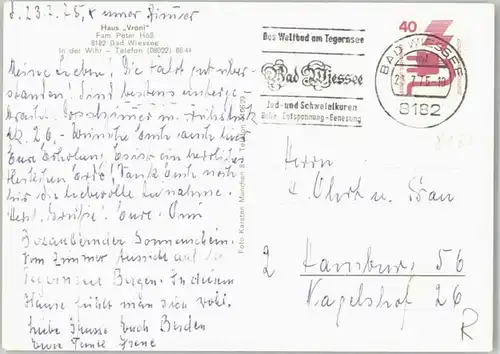 d. 23.7.75, x unser Zimmer
Haus „Vroni"
Fam. Peter Höß
8182 Bad Wiessee
In der Wihr - Telefon (08022) 8644
Meine Lieben! Die Fahrt gut über-
standen! Sind bestens unterge-
bracht. Doppelzimmer m. Frühstück
26,- Wünsche Euch auch
Eure Erholung Euer ein herrliches
Fleckchen Erde! Dank Euch noch
für die liebevolle Aufnahme.
Herzl. Grüße! Eure Omi
Bezaubernder Sonnenschein.
Vom Zimmer Aussicht auf die
Tegernseer Bergen. In diesem
Hause fühlt man sich wohl.
Liebe Grüsse Euch Beiden
Eure Tante Irene
Foto Karsten München
Telefon
Das Weltbad am Tegernsee
Bad Wiessee
Jod- und Schwefelkuren
Ruhe, Entspannung - Genesung
BAD WIESSEE
23.7.75-18
8182
40
Herrn
u. Frau
2 Hamburg 56
Nagelshof 26
R